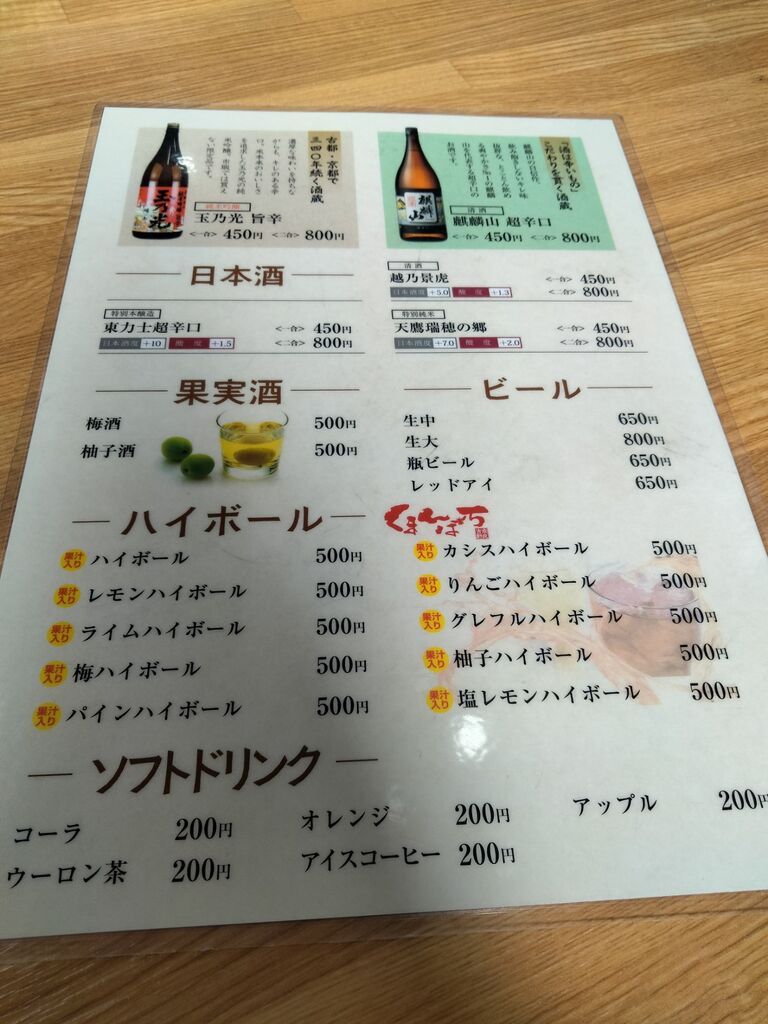 古都・京都で
三四〇年続く酒蔵
濃厚な味わいを持ちな
がらも、キレのある辛
口。米本来のおいしさ
を追求した玉乃光の純
米吟醸。市販では買え
ない限定品です。
玉乃光
純米吟醸
玉乃光 旨辛
<一合> 450円 <二合> 800円
「酒は辛いもの」
こだわりを貫く酒蔵
麒麟山
清酒
麒麟山 超辛口
<一合> 450円 <二合> 800円
日本酒
清酒
越乃景虎 <一合> 450円
日本酒度 +5.0 酸度 +1.3 <二合> 800円
特別本醸造
東力士超辛口 <一合> 450円
日本酒度 +10 酸度 +1.5 <二合> 800円
特別純米
天鷹瑞穂の郷 <一合> 450円
日本酒度 +7.0 酸度 +2.0 <二合> 800円
果実酒
梅酒 500円
柚子酒 500円
ビール
生中 650円
生大 800円
瓶ビール 650円
レッドアイ 650円
ハイボール
くまんばち
果汁入り ハイボール 500円
果汁入り レモンハイボール 500円
果汁入り ライムハイボール 500円
果汁入り 梅ハイボール 500円
果汁入り パインハイボール 500円
果汁入り カシスハイボール 500円
果汁入り りんごハイボール 500円
果汁入り グレフルハイボール 500円
果汁入り 柚子ハイボール 500円
果汁入り 塩レモンハイボール 500円
ソフトドリンク
コーラ 200円
オレンジ 200円
アップル 200円
ウーロン茶 200円
アイスコーヒー 200円